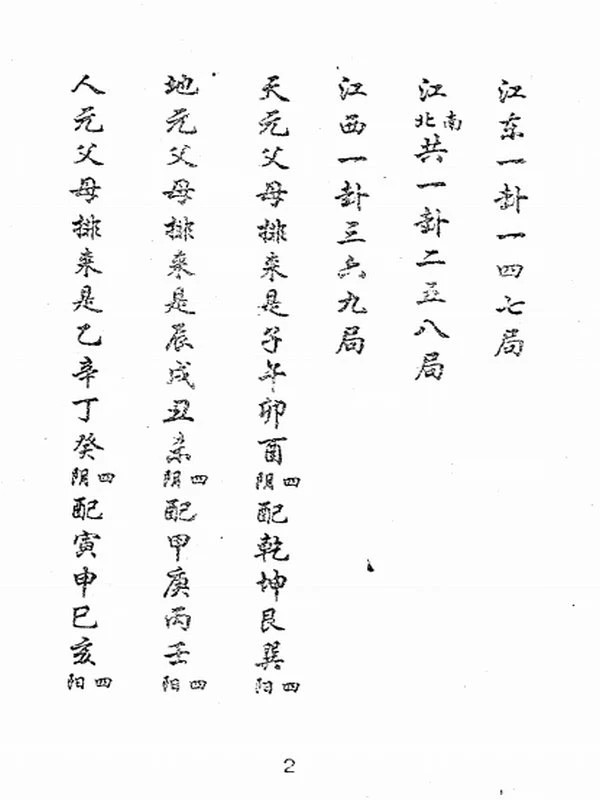 江东一卦一四七局
江南北共一卦二五八局
江西一卦三六九局
天元父母排来是子午卯酉四阴配乾坤艮巽四阳
地元父母排来是辰戌丑未四阴配甲庚丙壬四阳
人元父母排来是乙辛丁癸四阴配寅申巳亥四阳
2